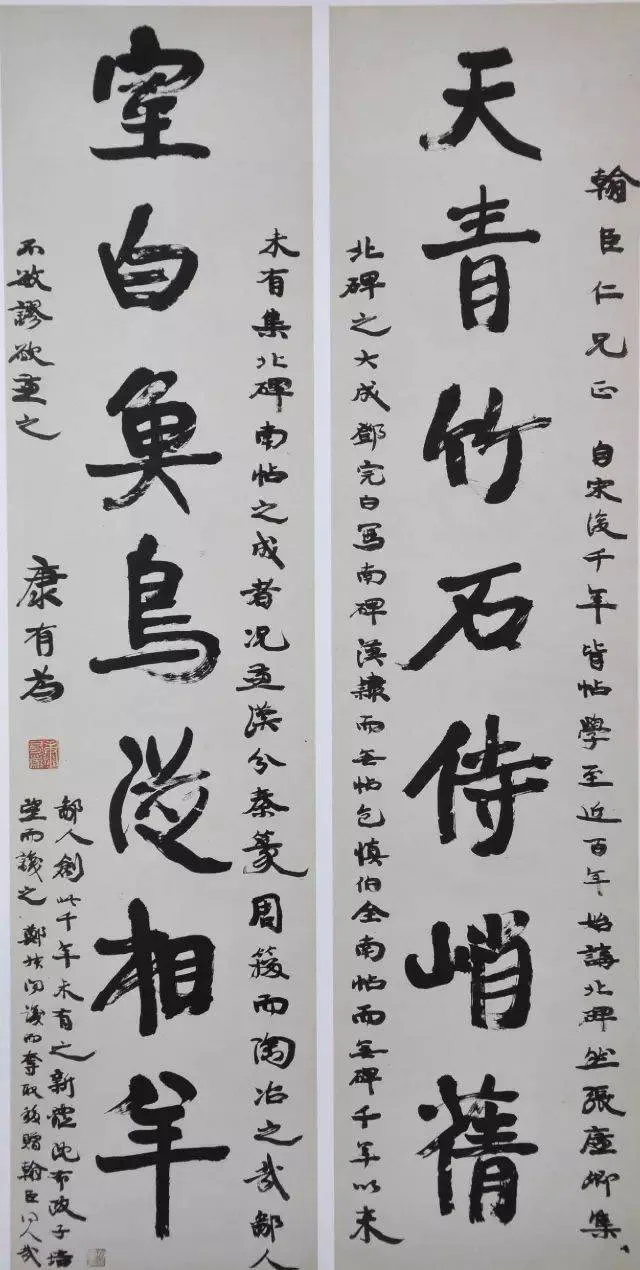 翰臣仁兄正 自宋後千年皆帖學至近百年始講北碑然張廉卿集
天青竹石侍峭蒨
北碑之大成鄧完白寫南碑漢隸而無帖包慎伯全南帖而無碑千年以來
未有集北碑南帖之成者況兼漢分秦篆周籀而陶冶之哉鄙人
室白魚鳥從相羊
不敏謬欲兼之
康有為
鄙人創此千年未有之新體沈布政子培
望而識之鄭叔問識而奪取移贈翰臣